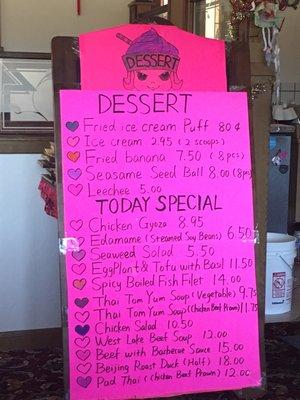 DESSERT
DESSERT
Fried ice cream Puff 80¢
Ice cream 2.95 (2 scoops)
Fried banana 7.50 (8pcs)
Seasame Seed Ball 8.00 (8pcs)
Leechee 5.00
TODAY SPECIAL
Chicken Gyoza 8.95
Edamame (Steamed Soy Beans) 6.50
Seaweed Salad 5.50
EggPlant & Tofu with Basil 11.50
Spicy Boiled Fish Filet 14.00
Thai Tom Yum Soup (Vegetable) 9.75
Thai Tom Yum Soup (Chicken Beef Prawn) 11.75
Chicken Salad 10.50
West Lake Beef Soup 12.00
Beef with Barbecue Sauce 15.00
Beijing Roast Duck (Half) 18.00
Pad Thai (Chicken Beef Prawn) 12.00